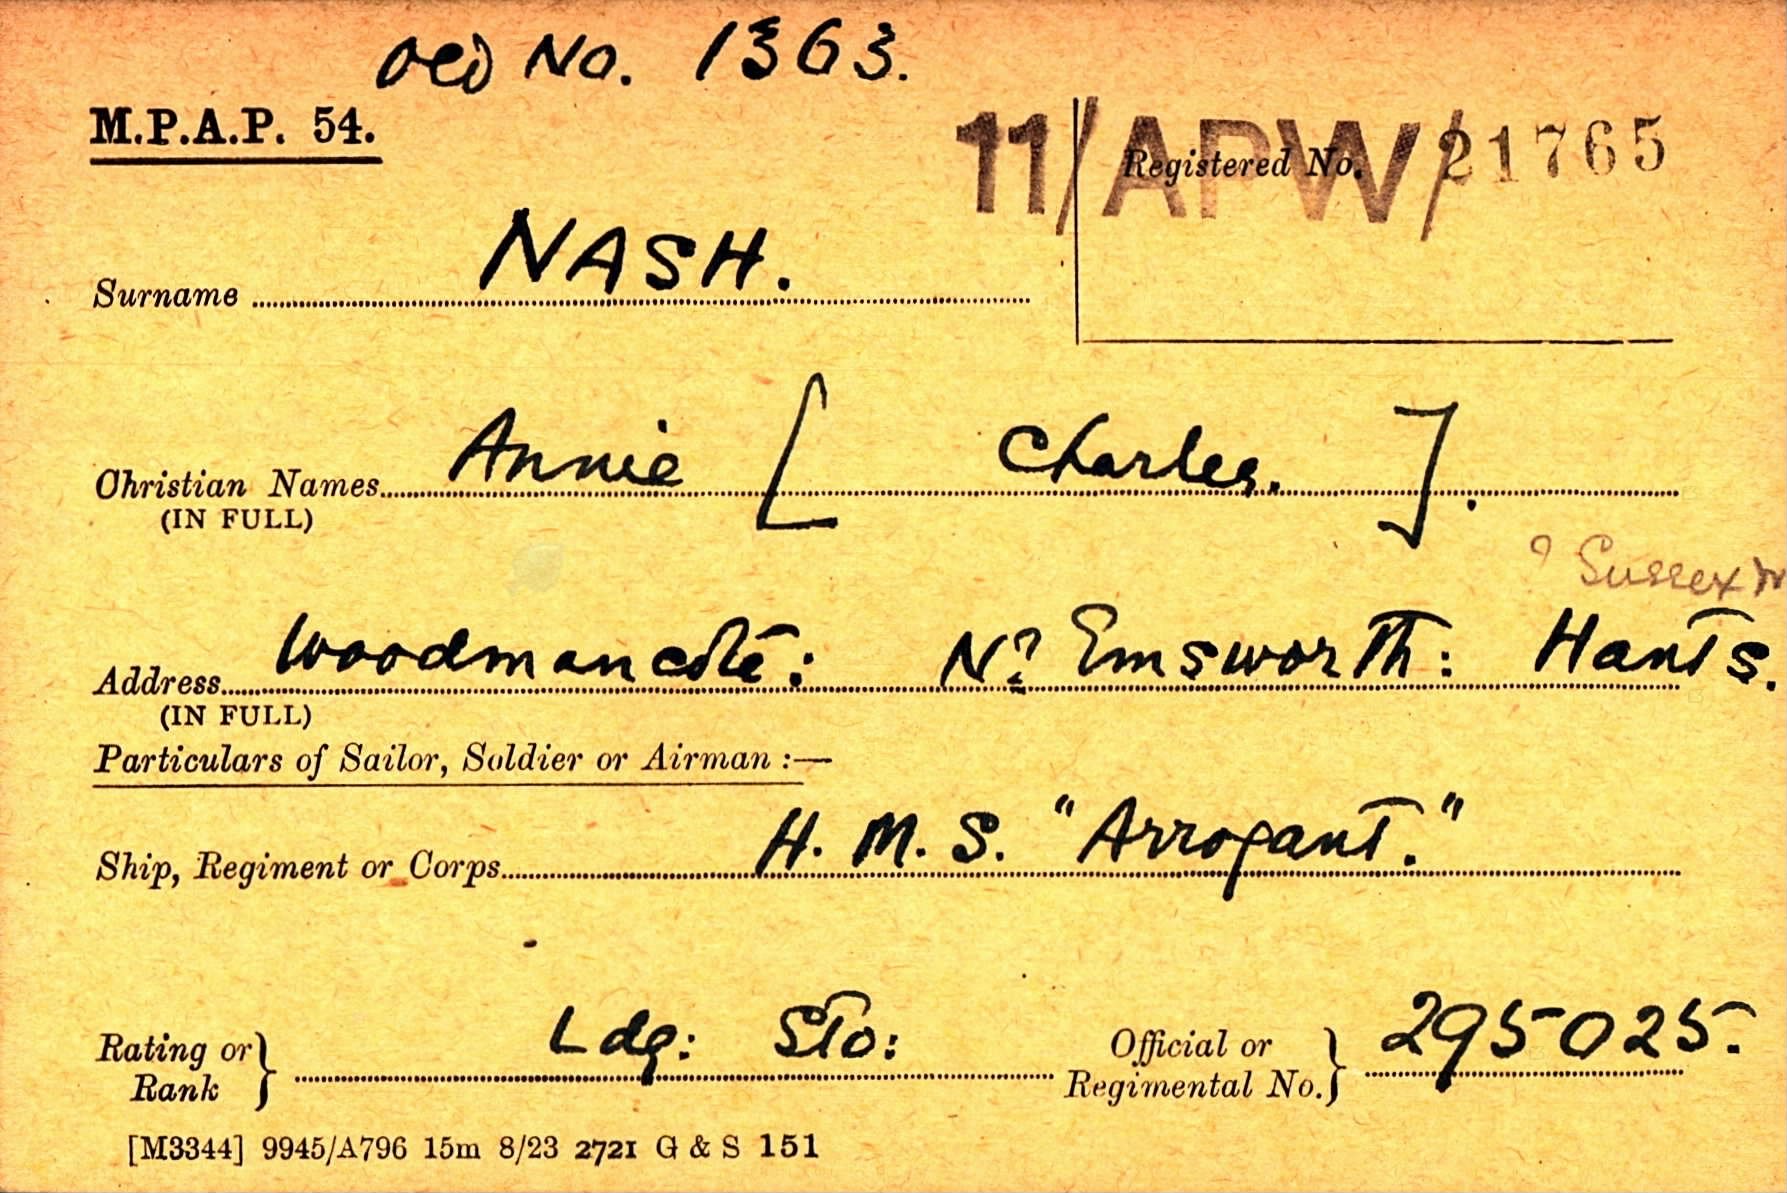 Old No. 1363.
M.P.A.P. 54.
11/APW/21765
Registered No.
Surname NASH.
Christian Names Annie [ Charles. ].
(IN FULL)
? Sussex
Address Woodmancote: Nr Emsworth: Hants.
(IN FULL)
Particulars of Sailor, Soldier or Airman :—
Ship, Regiment or Corps H. M. S. "Arrogant."
Rating or Rank } Ldg: Sto: Official or Regimental No. } 295025.
[M3344] 9945/A796 15m 8/23 2721 G & S 151